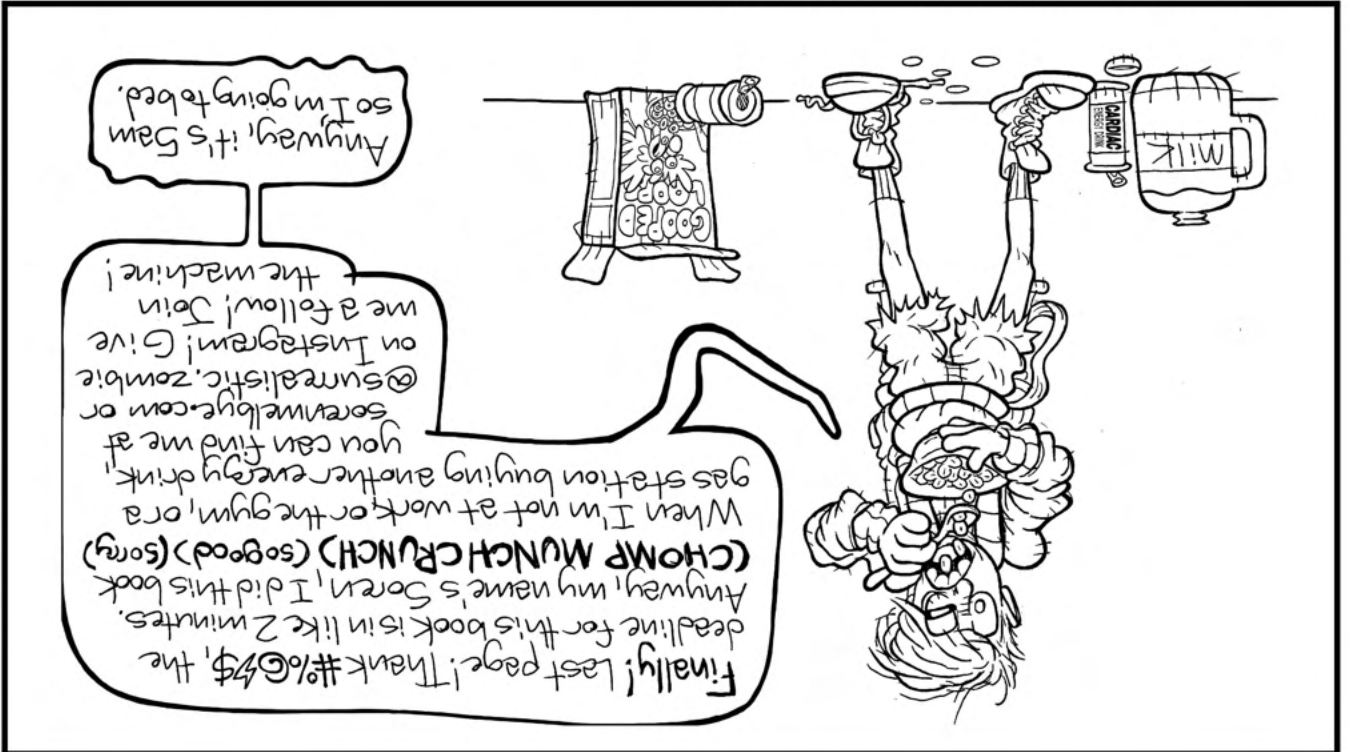 Finally! Last page! Thank #%@⚡$, the
deadline for this book is in like 2 minutes.
Anyway, my name's Soren, I did this book
(CHOMP MUNCH CRUNCH) (so good) (sorry)
When I'm not at work, or the gym, or a
gas station buying another energy drink,
you can find me at
sorenmelbye.com or
@surrealistic.zombie
on Instagram! Give
me a follow! Join
the machine!
Anyway, it's 5am
so I'm going to bed.
MiLK
CARDIAC
ENERGY DRINK